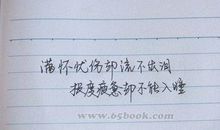 满怀忧伤却流不出泪
极度疲惫却不能入睡
www.65book.com